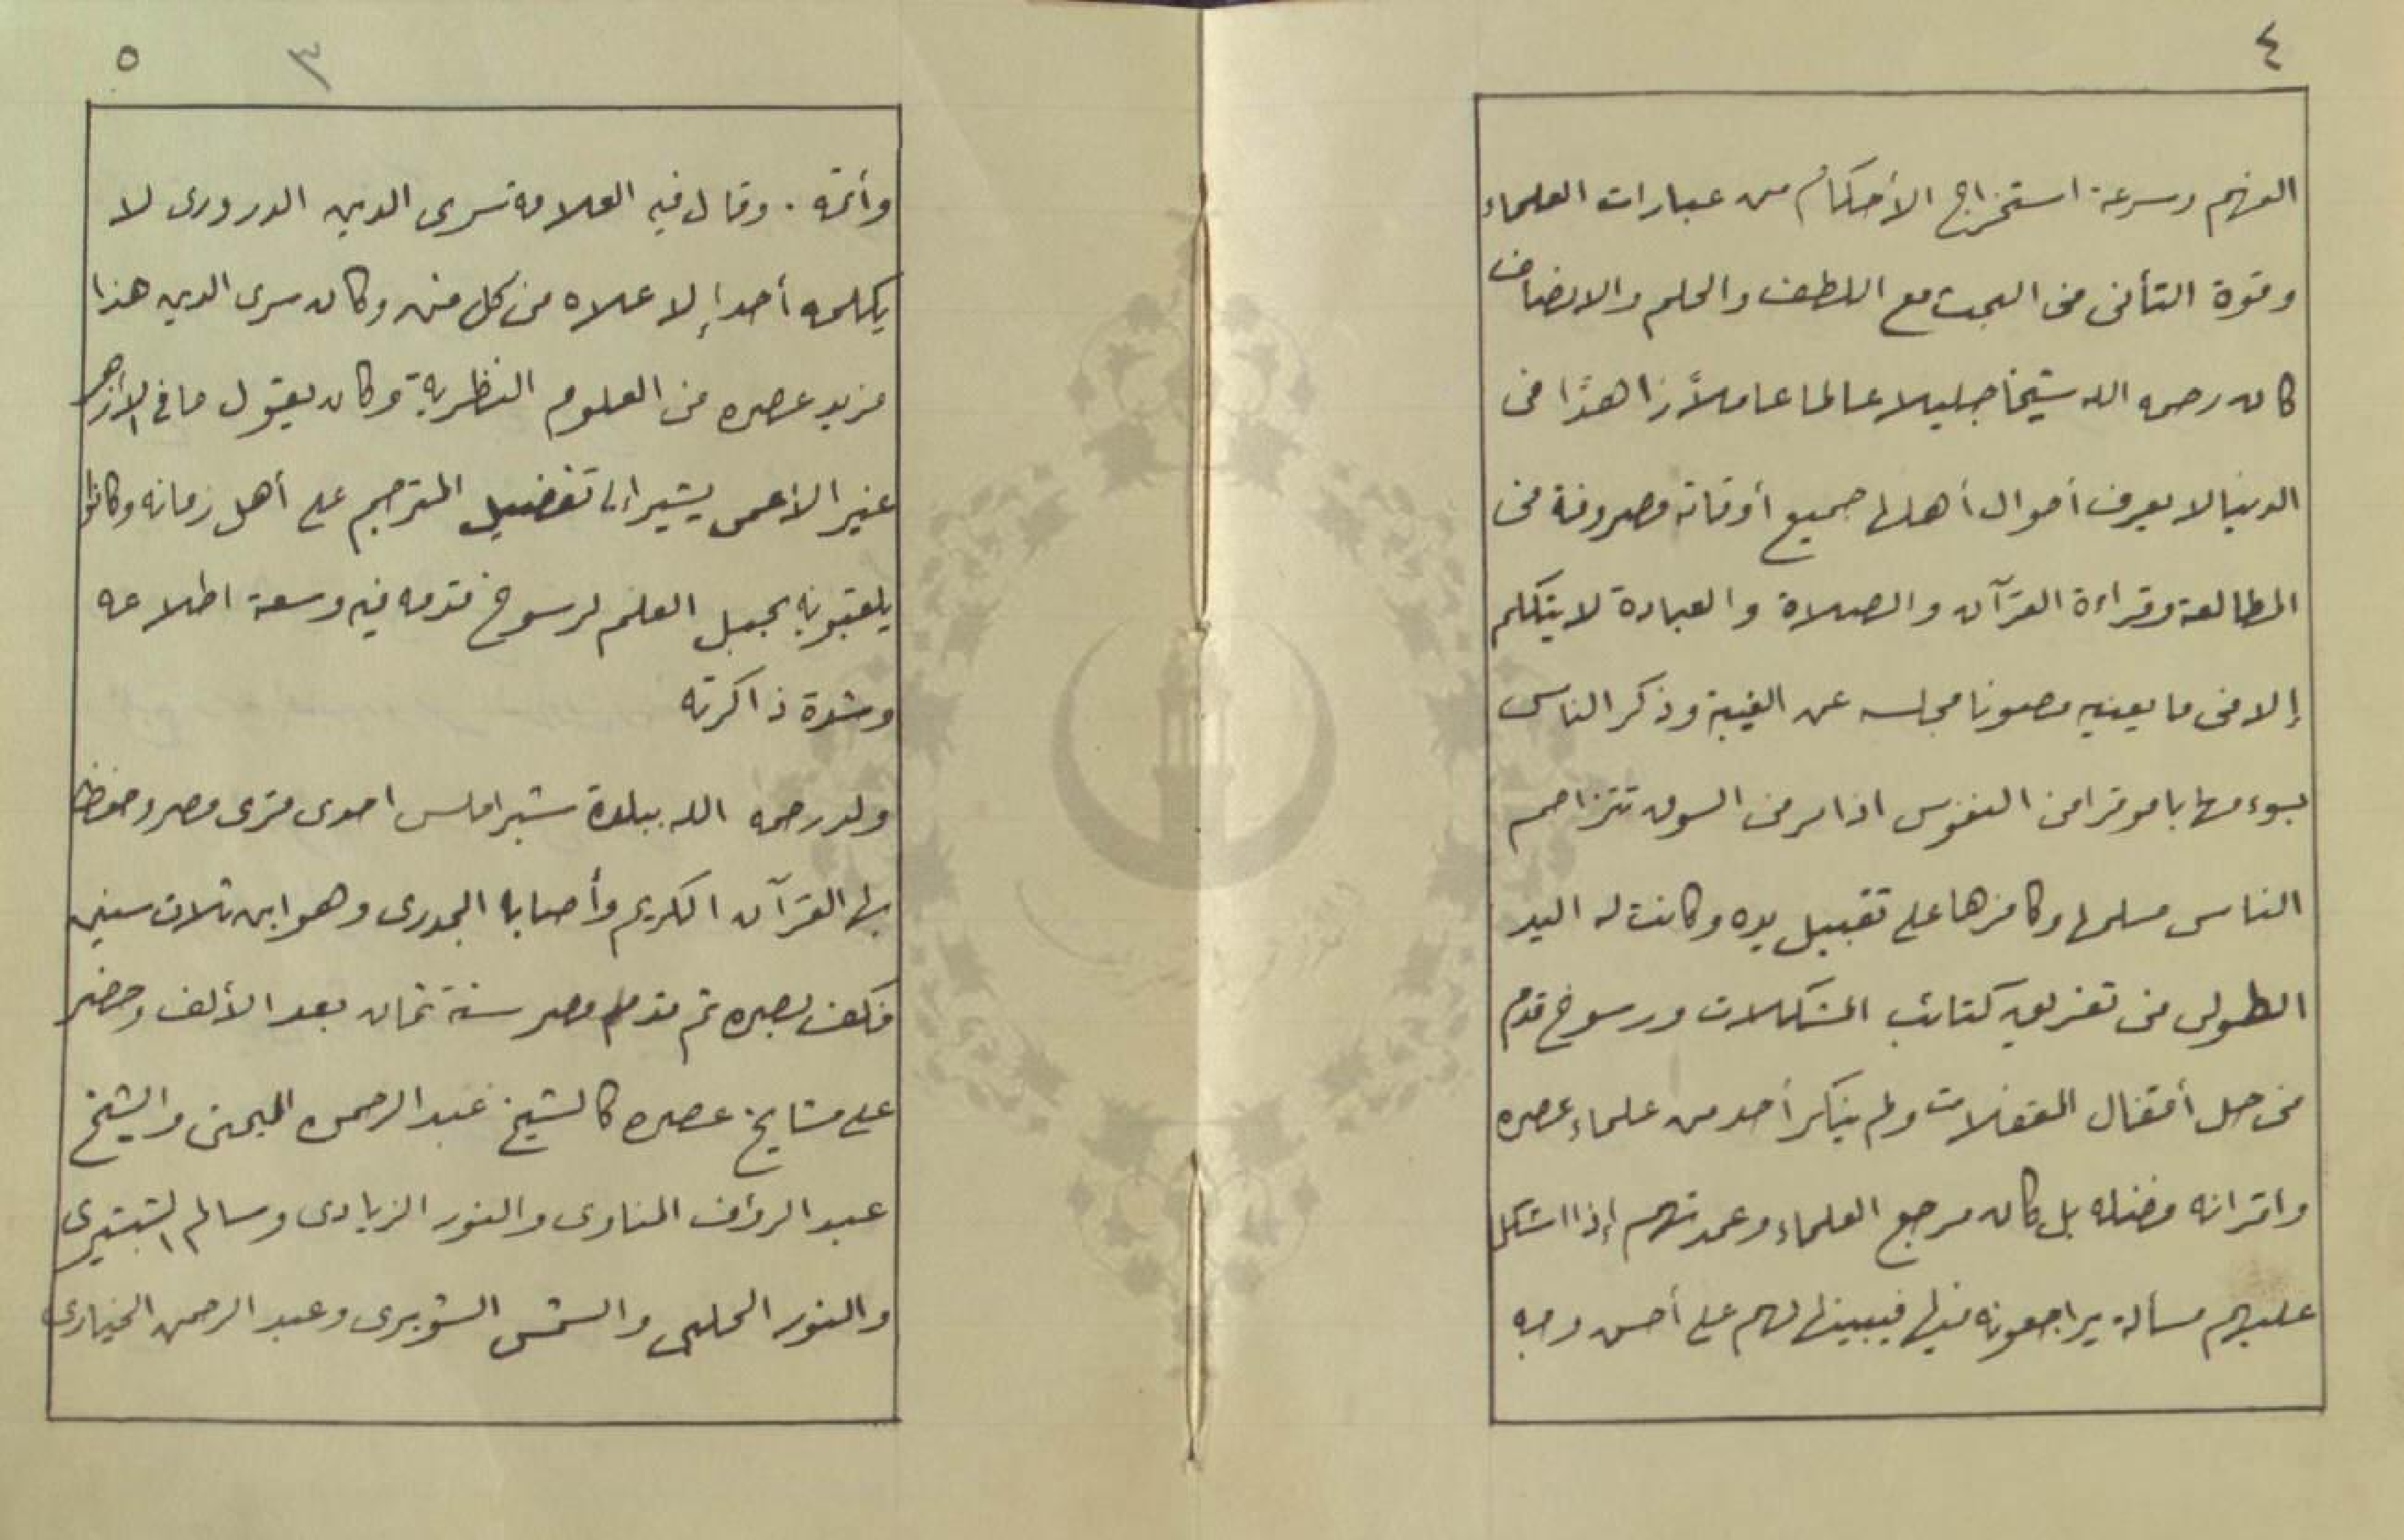 ٤
الفهم وسرعة استخراج الأحكام من عبارات العلماء
وقوة التأنى فى البحث مع اللطف والحلم والانصاف
كان رحمه الله شيخا جليلا عالما عاملاً زاهدًا فى
الدنيا لا يعرف أحوال أهلها جميع أوقاته مصروفة فى
المطالعة وقراءة القرآن والصلاة والعبادة لا يتكلم
إلا فى ما يعنيه مصونا مجلسه عن الغيبة وذكر الناس
بسوء مهابا موقرا فى النفوس اذا مر فى السوق تتزاحم
الناس مسلمها وكافرها على تقبيل يده وكانت له اليد
الطولى فى تفريق كتائب المشكلات ورسوخ قدم
فى حل أقفال المقفلات ولم ينكر أحد من علماء عصره
واقرانه فضله بل كان مرجع العلماء وعمدتهم إذا اشكل
عليهم مسألة يراجعونه فيها فيبينها لهم على أحسن وجه
٥
٣
وأتمه . وقال فيه العلامة سرى الدين الدرورى لا
يكلمه أحد إلا علاه فى كل فن وكان سرى الدين هذا
فريد عصره فى العلوم النظرية وكان يقول ما فى الازهر
غير الأعمى يشير إلى تفضيل المترجم على أهل زمانه وكانوا
يلقبونه بجبل العلم لرسوخ قدمه فيه وسعة اطلاعه
وشدة ذاكرته
ولد رحمه الله ببلدة شبراملس احدى قرى مصر وحفظ
بها القرآن الكريم وأصابه الجدرى وهو ابن ثلاث سنين
فكف بصره ثم قدم مصر سنة ثمان بعد الألف وحضر
على مشايخ عصره كالشيخ عبد الرحمن اليمنى والشيخ
عبد الرؤف المناوى والنور الزيادى وسالم الشبشيرى
والنور الحلبى والشمس الشوبرى وعبد الرحمن الخيارى